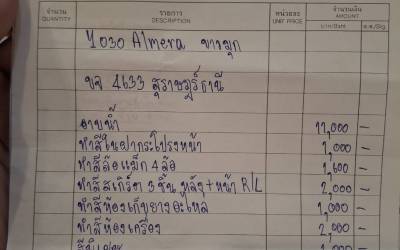 จำนวน QUANTITY รายการ DESCRIPTION หน่วยละ UNIT PRICE จำนวนเงิน AMOUNT
บาท/Baht ส.ต./Stg.
Almera ขาวมุก
ขจ 4633 สุราษฎร์ธานี
อาบน้ำ 11,000 -
ทำสีในฝากระโปรงหน้า 1,000 -
ทำสีล้อแม็ก 4 ล้อ 1,600 -
ทำสีสเกิร์ต 3 ชิ้น หลัง + หน้า R/L 2,000 -
ทำสีห้องเก็บยางอะไหล่ 1,000 -
ทำสีห้องเครื่อง 2,000 -